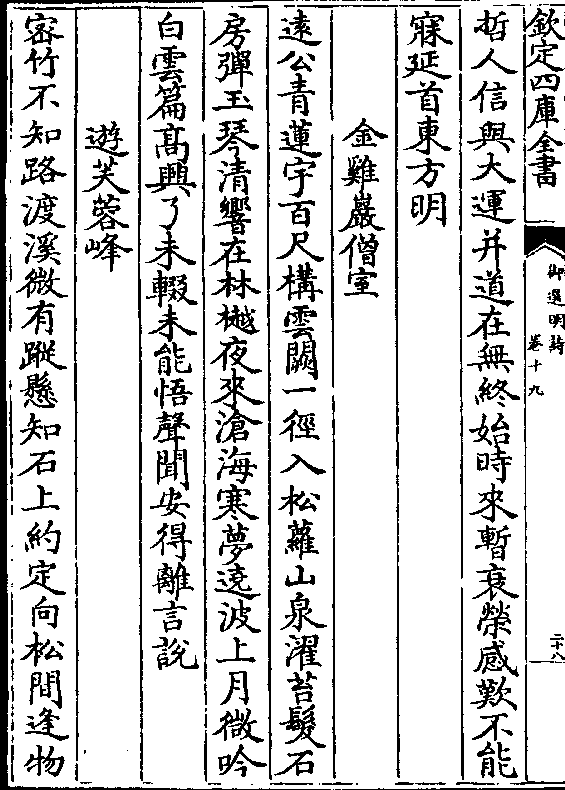 欽定四庫全書
御選明詩
卷十九
二十八
哲人信與大運并道在無終始時來暫衰榮感歎不能
寐延首東方明
金雞巖僧室
遠公青蓮宇百尺構雲闕一徑入松蘿山泉濯苔髮石
房彈玉琴清響在林樾夜來滄海寒夢遶波上月微吟
白雲篇高興了未輟未能悟聲聞安得離言說
遊芙蓉峰
密竹不知路渡溪微有蹤懸知石上約定向松間逢物